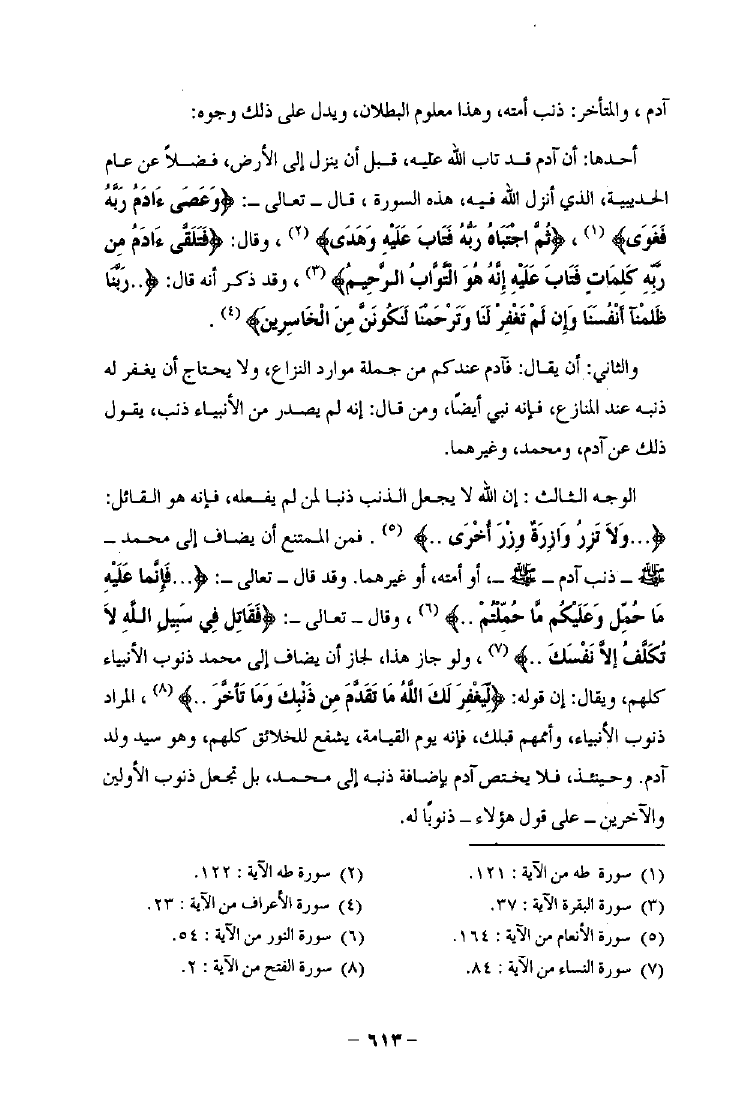 آدم ، والمتأخر: ذنب أمته، وهذا معلوم البطلان، ويدل على ذلك وجوه:
أحدها: أن آدم قد تاب الله عليه، قبل أن ينزل إلى الأرض، فضلاً عن عام
الحديبية، الذي أنزل الله فيه، هذه السورة ، قال ـ تعالى ـ: ﴿وَعَصَى ءَادَمُ رَبَّهُ
فَغَوَى﴾ (١) ، ﴿ثُمَّ اجْتَبَاهُ رَبُّهُ فَتَابَ عَلَيْهِ وَهَدَى﴾ (٢) ، وقال: ﴿فَتَلَقَّى ءَادَمُ مِن
رَبِّهِ كَلِمَاتٍ فَتَابَ عَلَيْهِ إِنَّهُ هُوَ التَّوَّابُ الرَّحِيمُ﴾ (٣) ، وقد ذكر أنه قال: ﴿..رَبَّنَا
ظَلَمْنَآ أَنْفُسَنَا وَإِن لَمْ تَغْفِرْ لَنَا وَتَرْحَمْنَا لَنَكُونَنَّ مِنَ الْخَاسِرِينَ﴾ (٤) .
والثاني: أن يقال: فآدم عندكم من جملة موارد النزاع، ولا يحتاج أن يغفر له
ذنبه عند المنازع، فإنه نبي أيضًا، ومن قال: إنه لم يصدر من الأنبياء ذنب، يقول
ذلك عن آدم، ومحمد، وغيرهما.
الوجه الثالث : إن الله لا يجعل الذنب ذنبا لمن لم يفعله، فإنه هو القائل:
﴿...وَلاَ تَزِرُ وَازِرَةٌ وِزْرَ أُخْرَى ..﴾ (٥) . فمن الممتنع أن يضاف إلى محمد ـ
ﷺ ـ ذنب آدم ـ ﷺ ـ، أو أمته، أو غيرهما. وقد قال ـ تعالى ـ: ﴿...فَإِنَّما عَلَيْهِ
مَا حُمِّل وَعَلَيْكُم مَّا حُمِّلْتُمْ ..﴾ (٦) ، وقال ـ تعالى ـ: ﴿فَقَاتِل فِي سَبِيل اللَّهِ لاَ
تُكَلَّفُ إِلاَّ نَفْسَكَ ..﴾ (٧) ، ولو جاز هذا، لجاز أن يضاف إلى محمد ذنوب الأنبياء
كلهم، ويقال: إن قوله: ﴿لِّيَغْفِرَ لَكَ اللَّهُ مَا تَقَدَّمَ مِن ذَنْبِكَ وَمَا تَأَخَّرَ ..﴾ (٨) ، المراد
ذنوب الأنبياء، وأممهم قبلك، فإنه يوم القيامة، يشفع للخلائق كلهم، وهو سيد ولد
آدم. وحينئذ، فلا يختص آدم بإضافة ذنبه إلى محمد، بل تجعل ذنوب الأولين
والآخرين ـ على قول هؤلاء ـ ذنوبًا له.
(١) سورة طه من الآية : ١٢١. (٢) سورة طه الآية : ١٢٢.
(٣) سورة البقرة الآية : ٣٧. (٤) سورة الأعراف من الآية : ٢٣.
(٥) سورة الأنعام من الآية : ١٦٤. (٦) سورة النور من الآية : ٥٤.
(٧) سورة النساء من الآية : ٨٤. (٨) سورة الفتح من الآية : ٢.
- ٦١٣ -